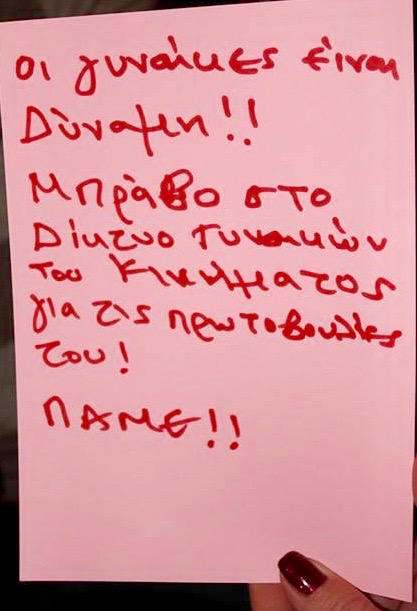 οι γυναίκες είναι
Δύναμη!!
Μπράβο στο
Δίκτυο Γυναικών
του Κινήματος
για τις πρωτοβουλίες
του!
ΠΑΜΕ!!